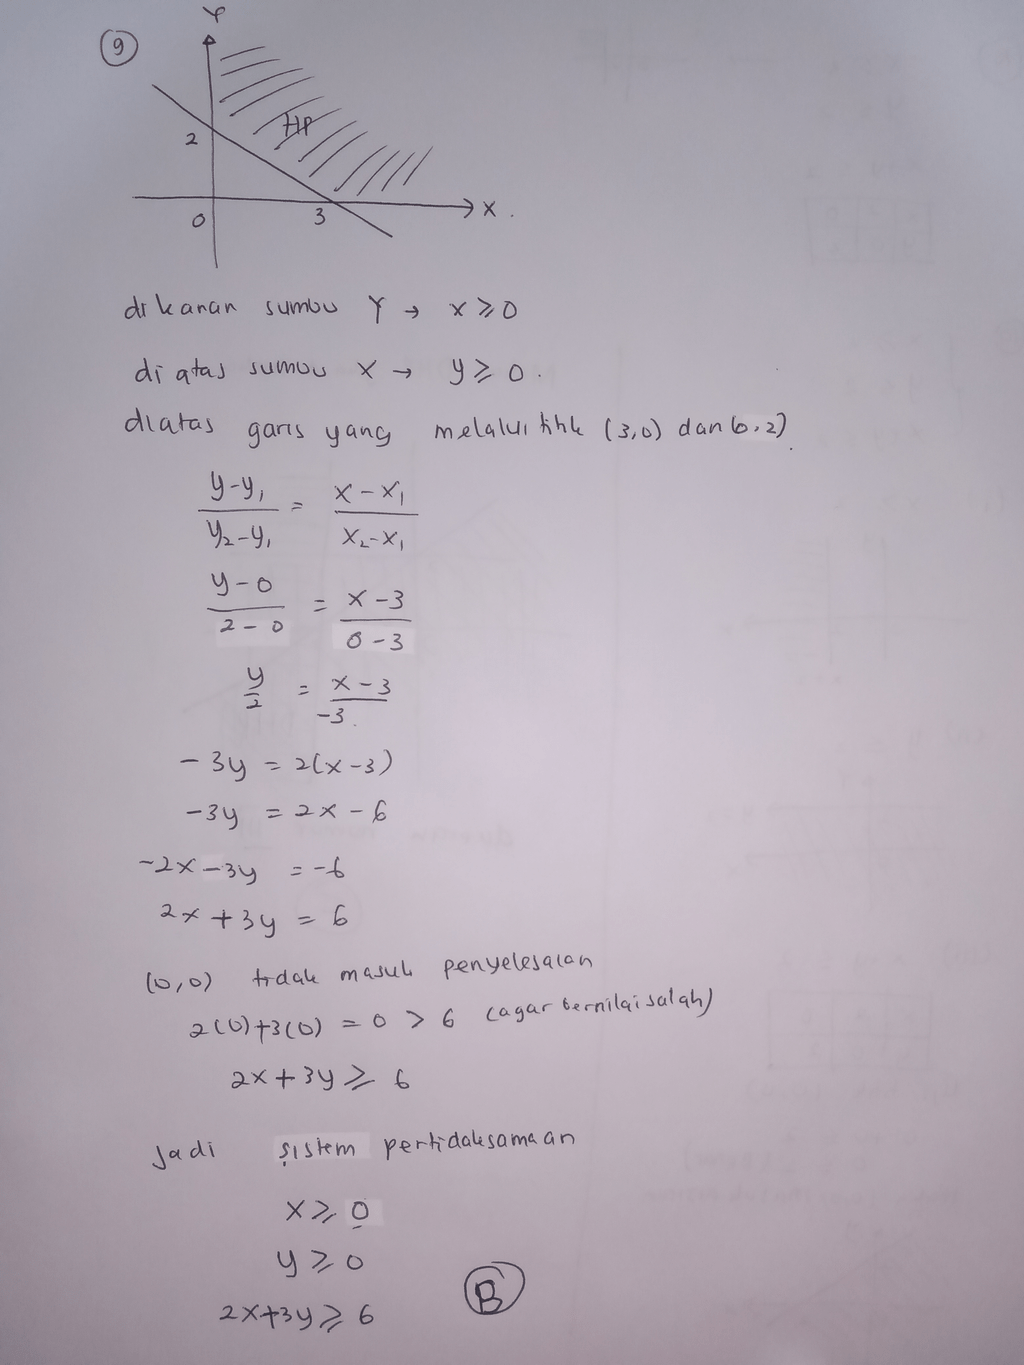 9
Y
HP
2
0
3
X.
di kanan sumbu Y → x ≥ 0
di atas sumbu X → y ≥ 0.
diatas garis yang melalui titik (3,0) dan (0,2).
y-y₁ / y₂-y₁ = x-x₁ / x₂-x₁
y-0 / 2-0 = x-3 / 0-3
y/2 = x-3 / -3.
-3y = 2(x-3)
-3y = 2x-6
-2x-3y = -6
2x+3y = 6
(0,0) tidak masuk penyelesaian
2(0)+3(0) = 0 > 6 (agar bernilai salah)
2x+3y ≥ 6
Jadi sistem pertidaksamaan
x ≥ 0
y ≥ 0
2x+3y ≥ 6
B